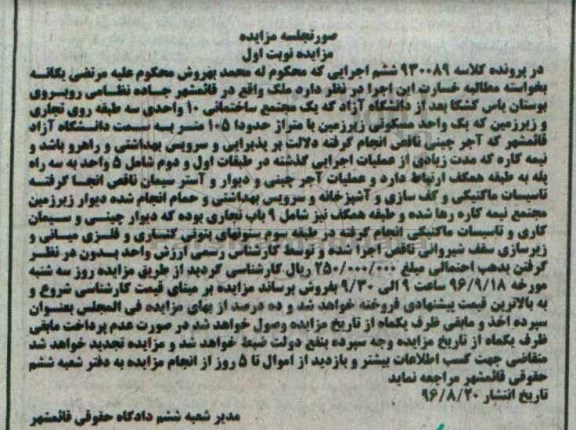 صورتجلسه مزایده
مزایده نوبت اول
در پرونده کلاسه ۹۳۰۰۸۹ ششم اجرایی که محکوم له محمد بهروش محکوم علیه مرتضی یگانه
بخواسته مطالبه خسارت این اجرا در نظر دارد ملک واقع در قائمشهر جاده نظامی روبروی
بوستان یاس کشکا بعد از دانشگاه آزاد که یک مجتمع ساختمانی ۱۰ واحدی سه طبقه روی تجاری
و زیرزمین که یک واحد مسکونی زیرزمین با متراژ حدودا ۱۰۵ متر به سمت دانشگاه آزاد
قائمشهر که آجر چینی ناقص انجام گرفته دلالت بر پذیرایی و سرویس بهداشتی و راهرو باشد و
نیمه کاره که مدت زیادی از عملیات اجرایی گذشته در طبقات اول و دوم شامل ۵ واحد به سه راه
پله به طبقه همکف ارتباط دارد و عملیات آجر چینی و دیوار و آستر سیمان ناقص انجا گرفته
تاسیسات ماکتیکی و کف سازی و آشپزخانه و سرویس بهداشتی و حمام انجام شده دیوار زیرزمین
مجتمع نیمه کاره رها شده و طبقه همکف نیز شامل ۹ باب تجاری بوده که دیوار چینی و سیمان
کاری و تاسیسات ماکتیکی انجام گرفته در طبقه سوم ستونهای بتونی کشاری و فلزی میانی و
زیرسازی سقف شیروانی ناقص اجرا شده و توسط کارشناس رسمی ارزش واحد بدون در نظر
گرفتن بدهب احتمالی مبلغ ۲۵۰/۰۰۰/۰۰۰ ریال کارشناسی گردید از طریق مزایده روز سه شنبه
مورخه ۹۶/۹/۱۸ ساعت ۹ الی ۹/۳۰ بفروش برساند مزایده بر مبنای قیمت کارشناسی شروع و
به بالاترین قیمت پیشنهادی فروخته خواهد شد و ده درصد از بهای مزایده فی المجلس بعنوان
سپرده اخذ و مابقی ظرف یکماه از تاریخ مزایده وصول خواهد شد در صورت عدم پرداخت مابقی
ظرف یکماه از تاریخ مزایده وجه سپرده بنفع دولت ضبط خواهد شد و مزایده تجدید خواهد شد
متقاضی جهت کسب اطلاعات بیشتر و بازدید از اموال تا ۵ روز از انجام مزایده به دفتر شعبه ششم
حقوقی قائمشهر مراجعه نماید
تاریخ انتشار ۹۶/۸/۲۰
مدیر شعبه ششم دادگاه حقوقی قائمشهر